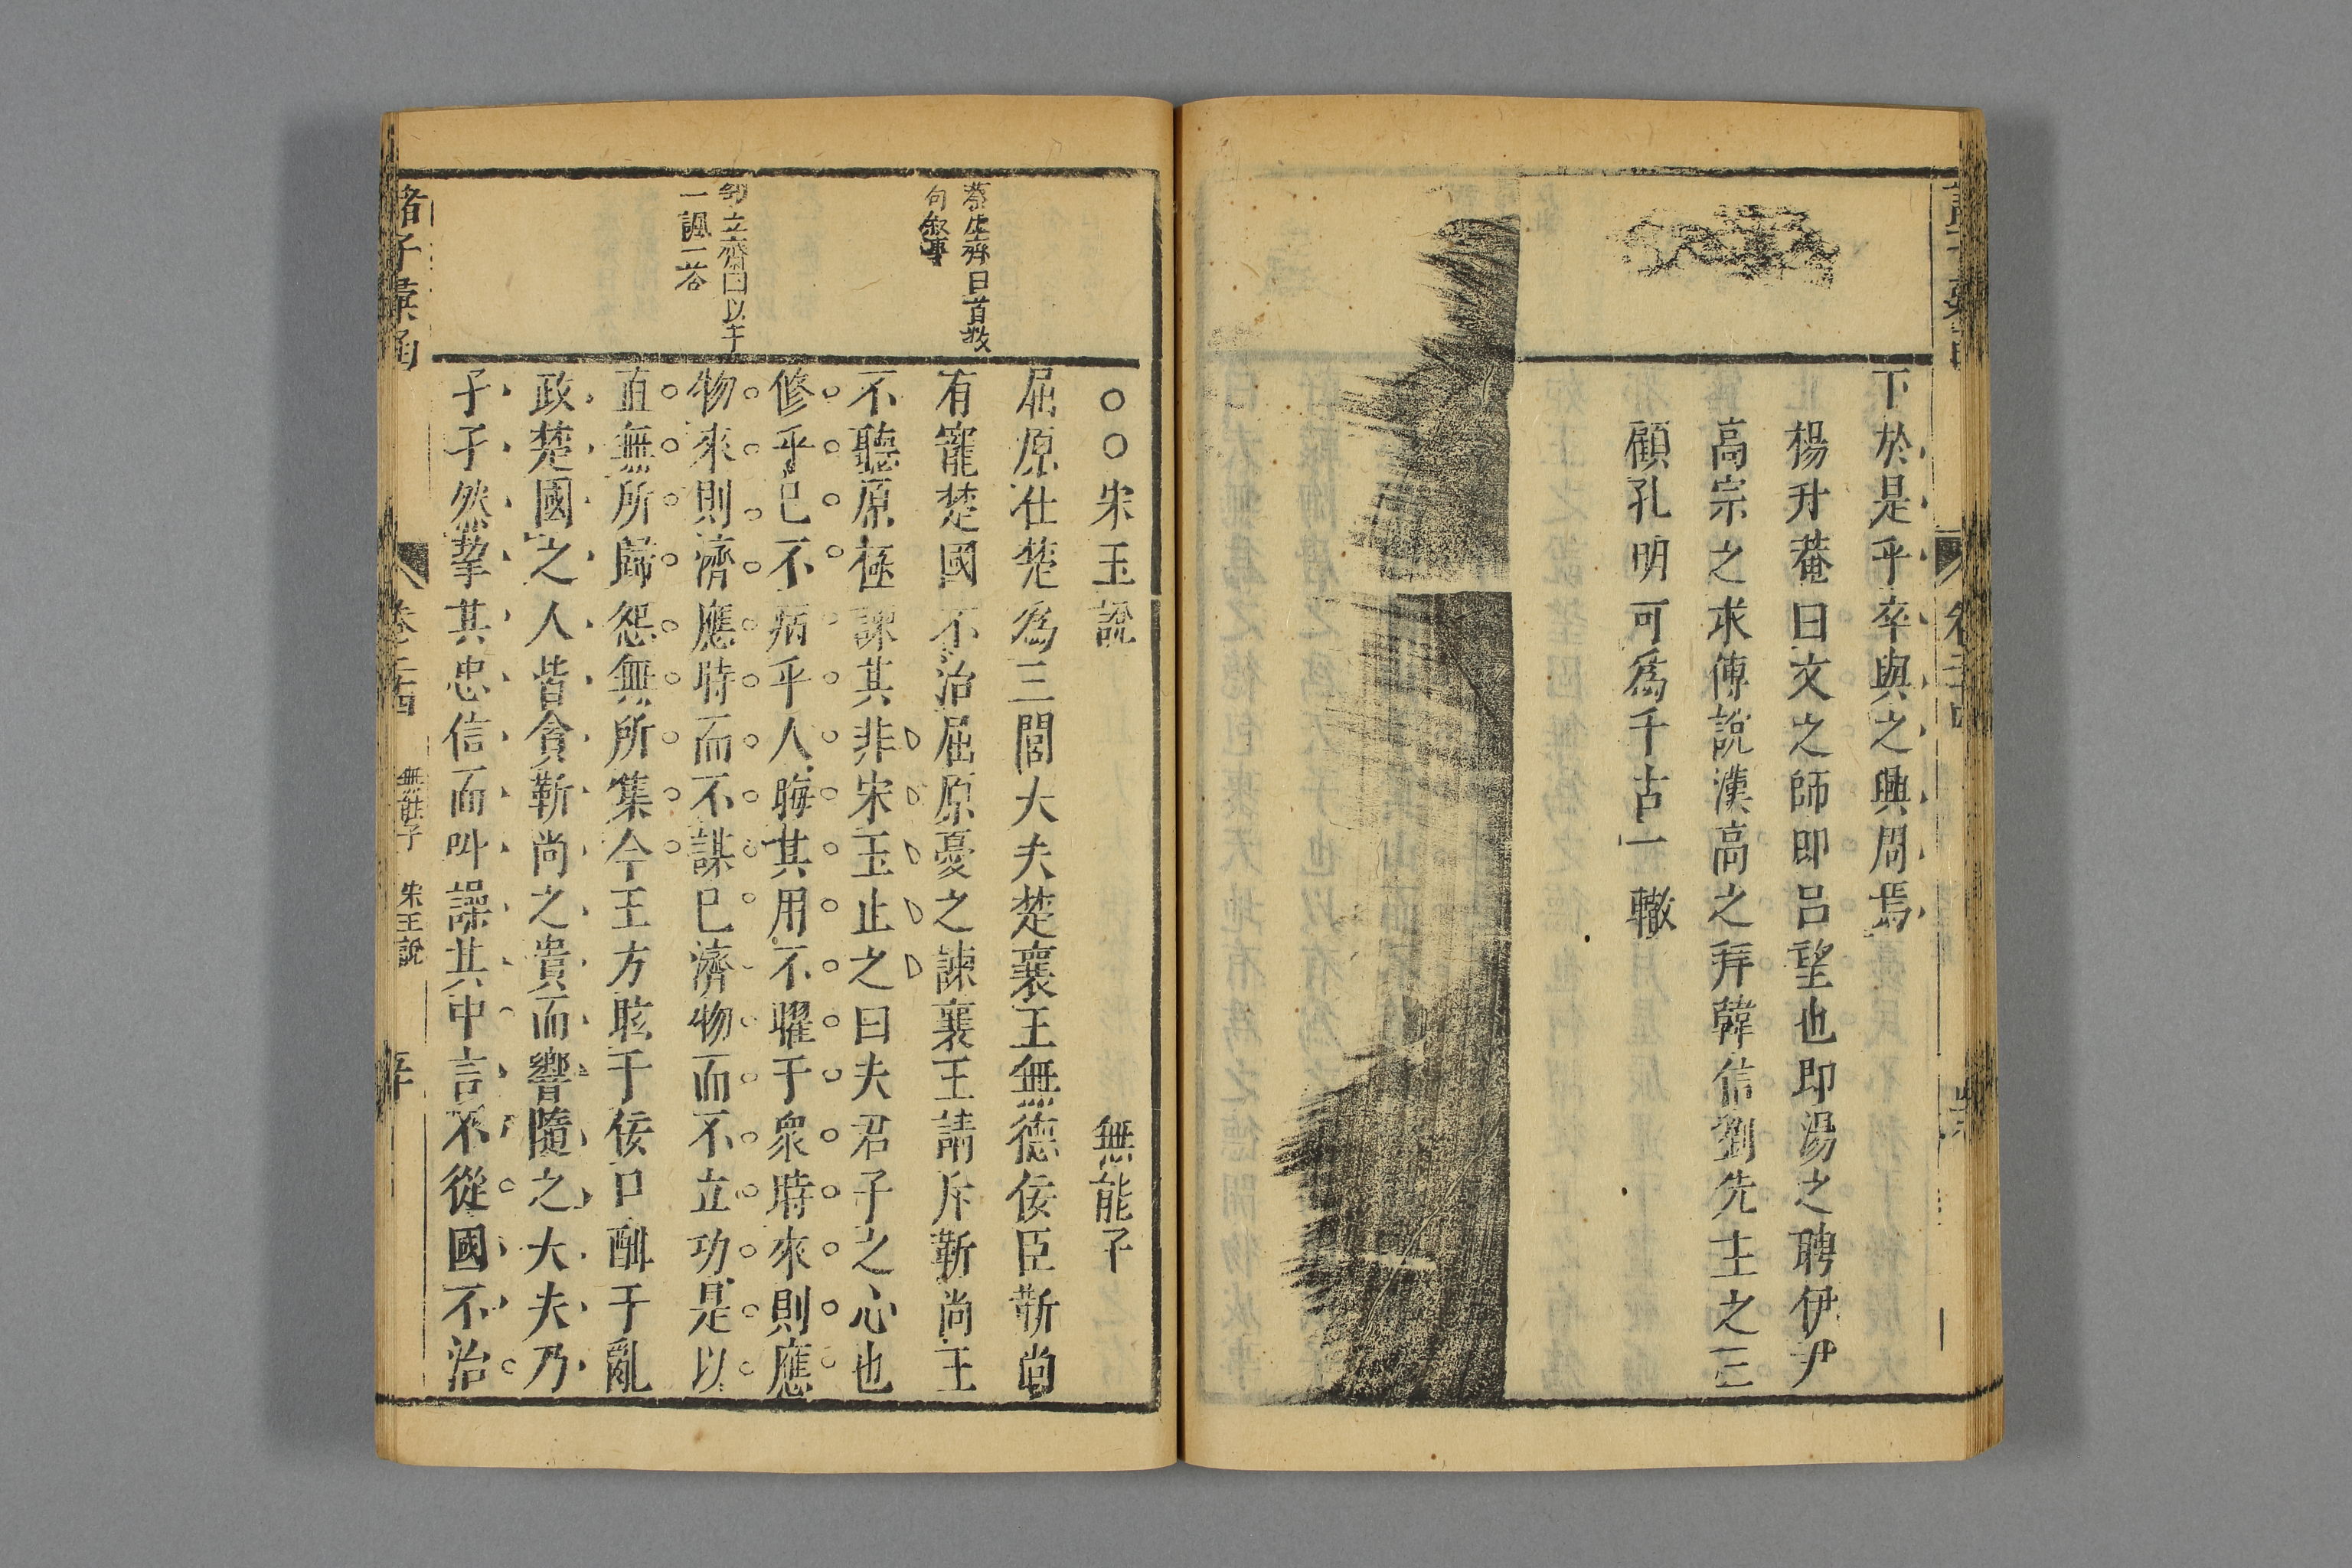 下於是乎卒與之興周焉
楊升菴曰文之師即呂望也即湯之聘伊尹
高宗之求傅說漢高之拜韓信劉先主之三
顧孔明可為千古一轍
蔡生齊曰首數
句敘事
立齊曰以下
一諷一答
○○宋玉說 無能子
屈原仕楚為三閭大夫楚襄王無德佞臣靳尚
有寵楚國不治屈原憂之諫襄王請斥靳尚王
不聽原極諫其非宋玉止之曰夫君子之心也
修乎已不病乎人晦其用不曜于衆時來則應
物來則濟應時而不謀已濟物而不立功是以
直無所歸怨無所集今王方眩于佞口酣于亂
政楚國之人皆貪靳尚之貴而響隨之大夫乃
孑孑然挈其忠信而叫譟其中言不從國不治
諸子彙函
卷二十四
無能子 宋玉說